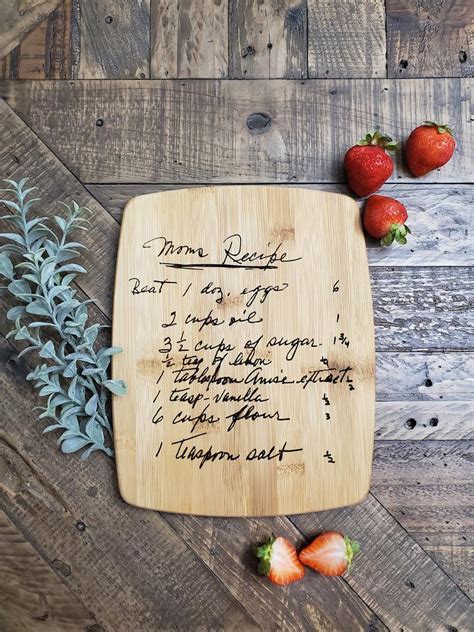 Moms Recipe
Beat 1 doz. eggs 6
2 cups oil 1
3 1/2 cups of sugar 1 3/4
1/2 teasp of lemon
1 Tablespoon Anise extract 1/2
1 teasp-vanilla 1/2
6 cups flour 3
1 Teaspoon salt 1/2